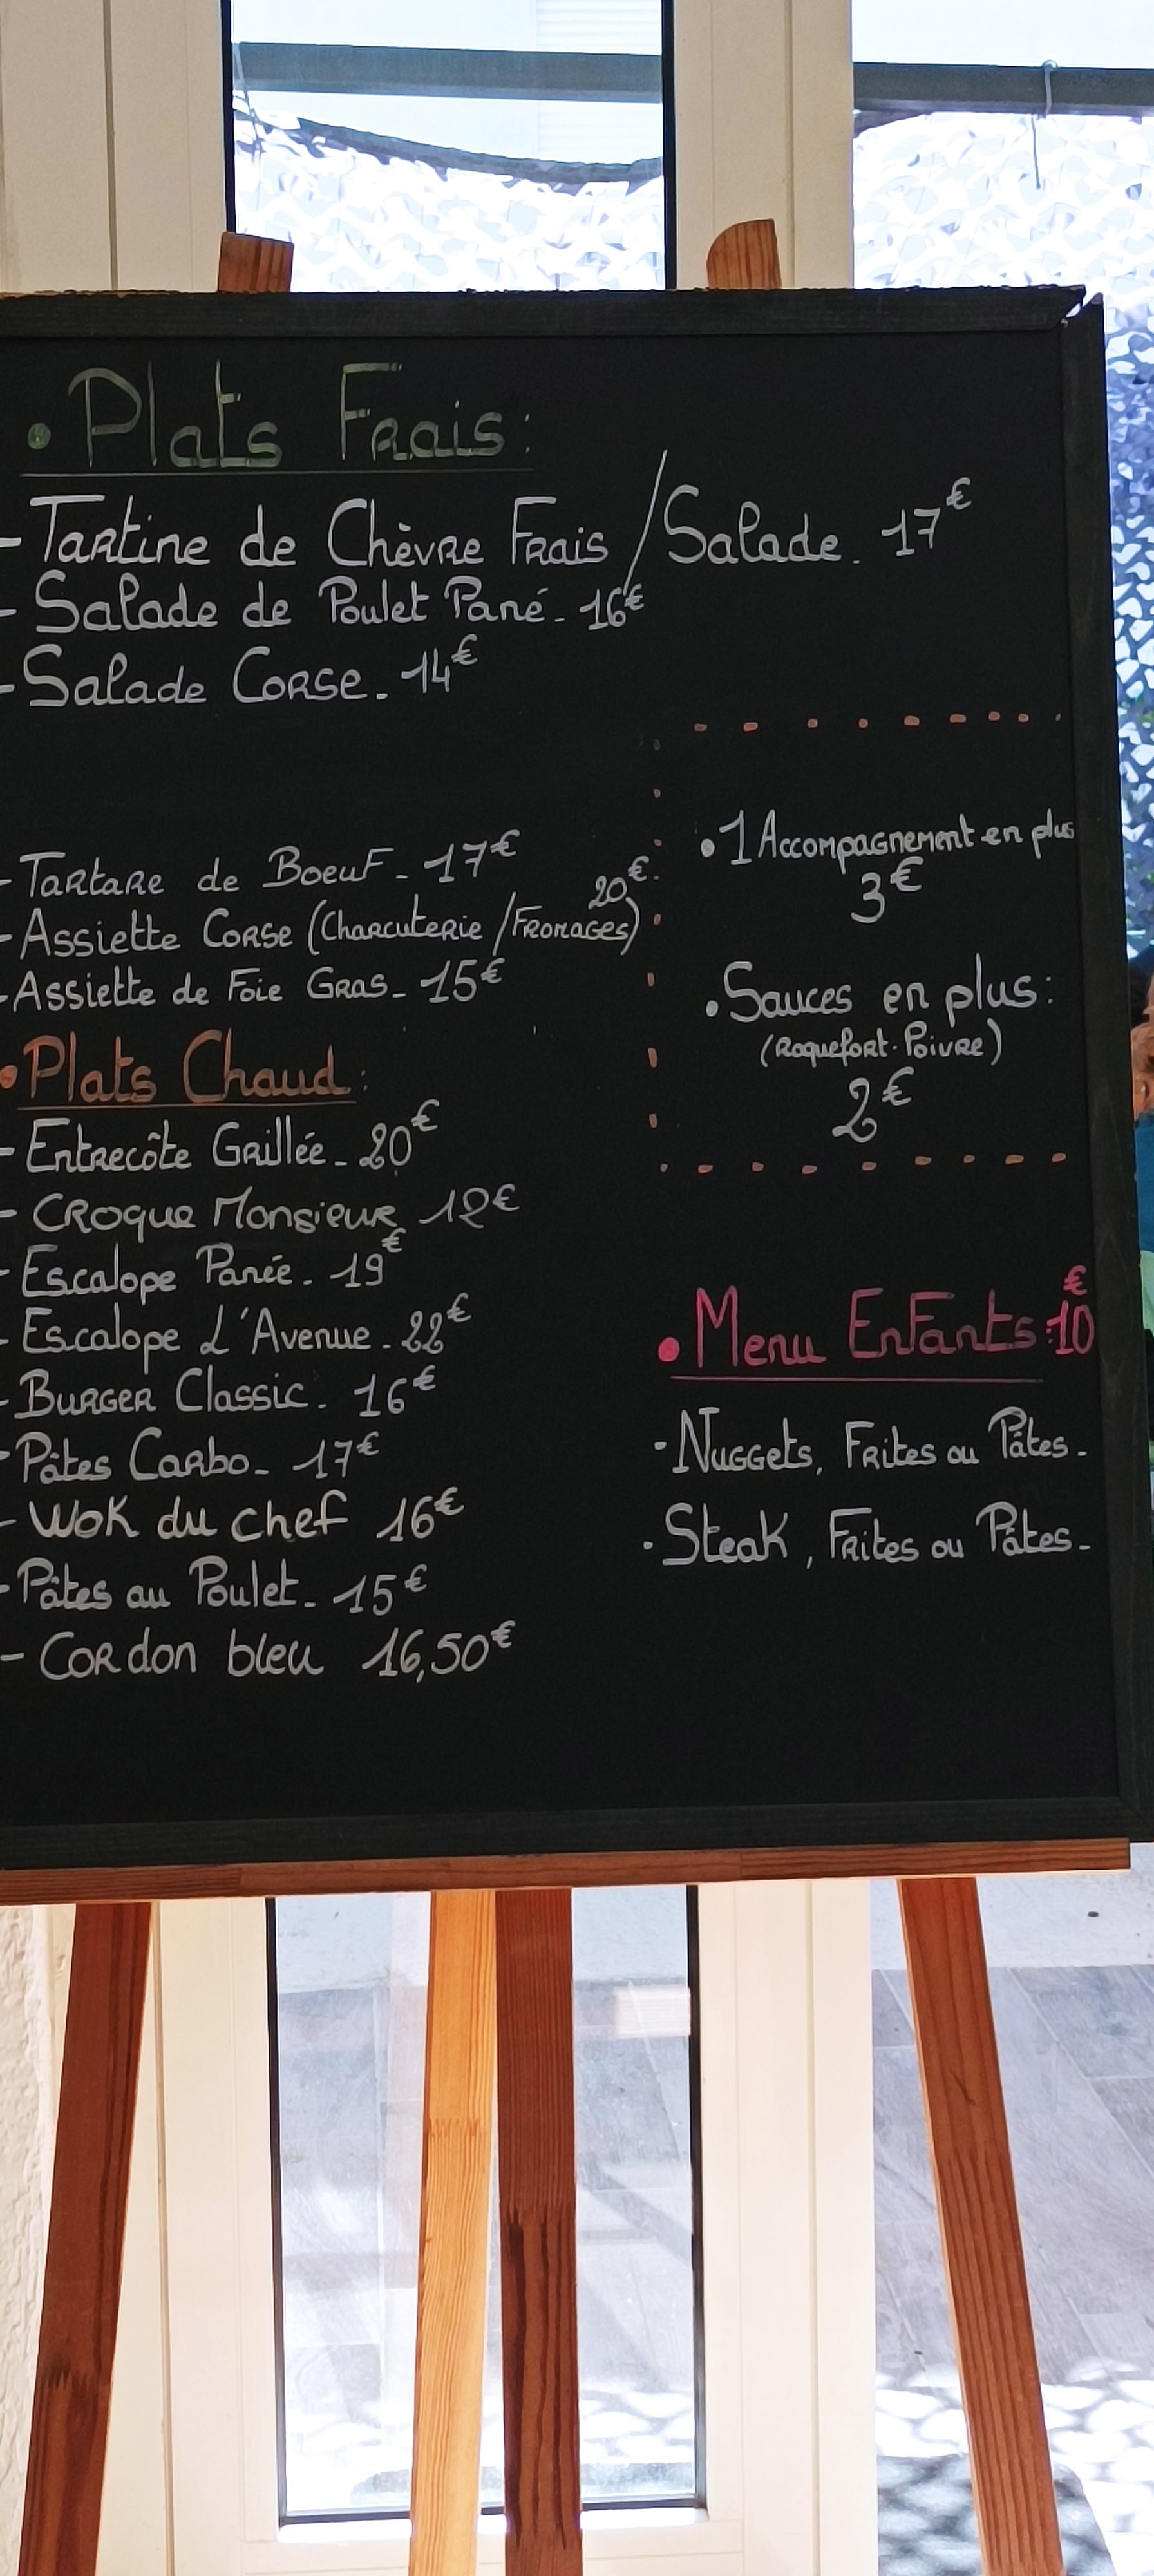 • Plats Frais :
- Tartine de Chèvre Frais / Salade. 17€
- Salade de Poulet Pané - 16€
- Salade Corse - 14€
- Tartare de Boeuf - 17€
- Assiette Corse (Charcuterie / Fromages) 20€
- Assiette de Foie Gras - 15€
• Plats Chaud :
- Entrecôte Grillée - 20€
- Croque Monsieur 12€
- Escalope Panée - 19€
- Escalope L'Avenue - 22€
- Burger Classic - 16€
- Pâtes Carbo - 17€
- Wok du chef 16€
- Pâtes au Poulet - 15€
- Cordon bleu 16,50€
• 1 Accompagnement en plus
3€
• Sauces en plus :
(Roquefort - Poivre)
2€
• Menu Enfants : 10€
- Nuggets, Frites ou Pâtes -
- Steak, Frites ou Pâtes -